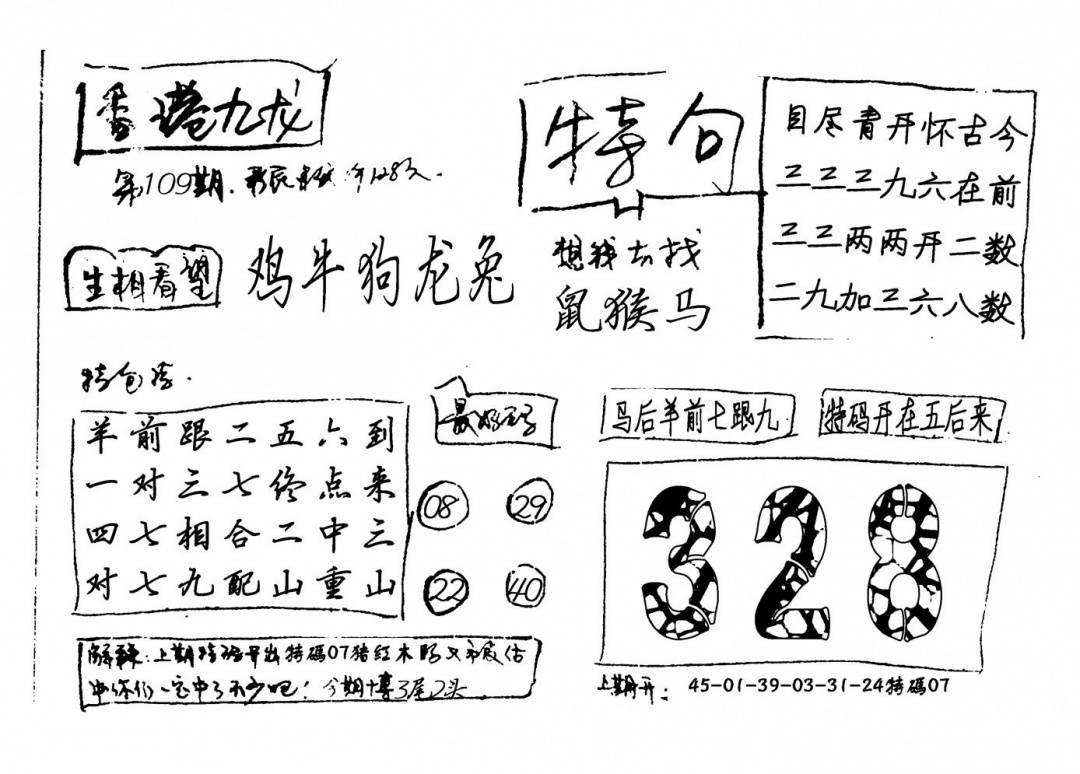 香港九龙
第109期.
特句
目尽青开怀古今
三三三九六在前
三三两两开二数
二九加三六八数
生相看望
鸡牛狗龙兔
想我去找
鼠猴马
羊前跟二五六到
一对三七终点来
四七相合二中三
对七九配山重山
08 29
22 40
马后羊前七跟九
特码开在五后来
328
上期特码开出特碼07猪红木
中你们一定中了不少吧! 今期博3尾2头
上期开: 45-01-39-03-31-24特碼07